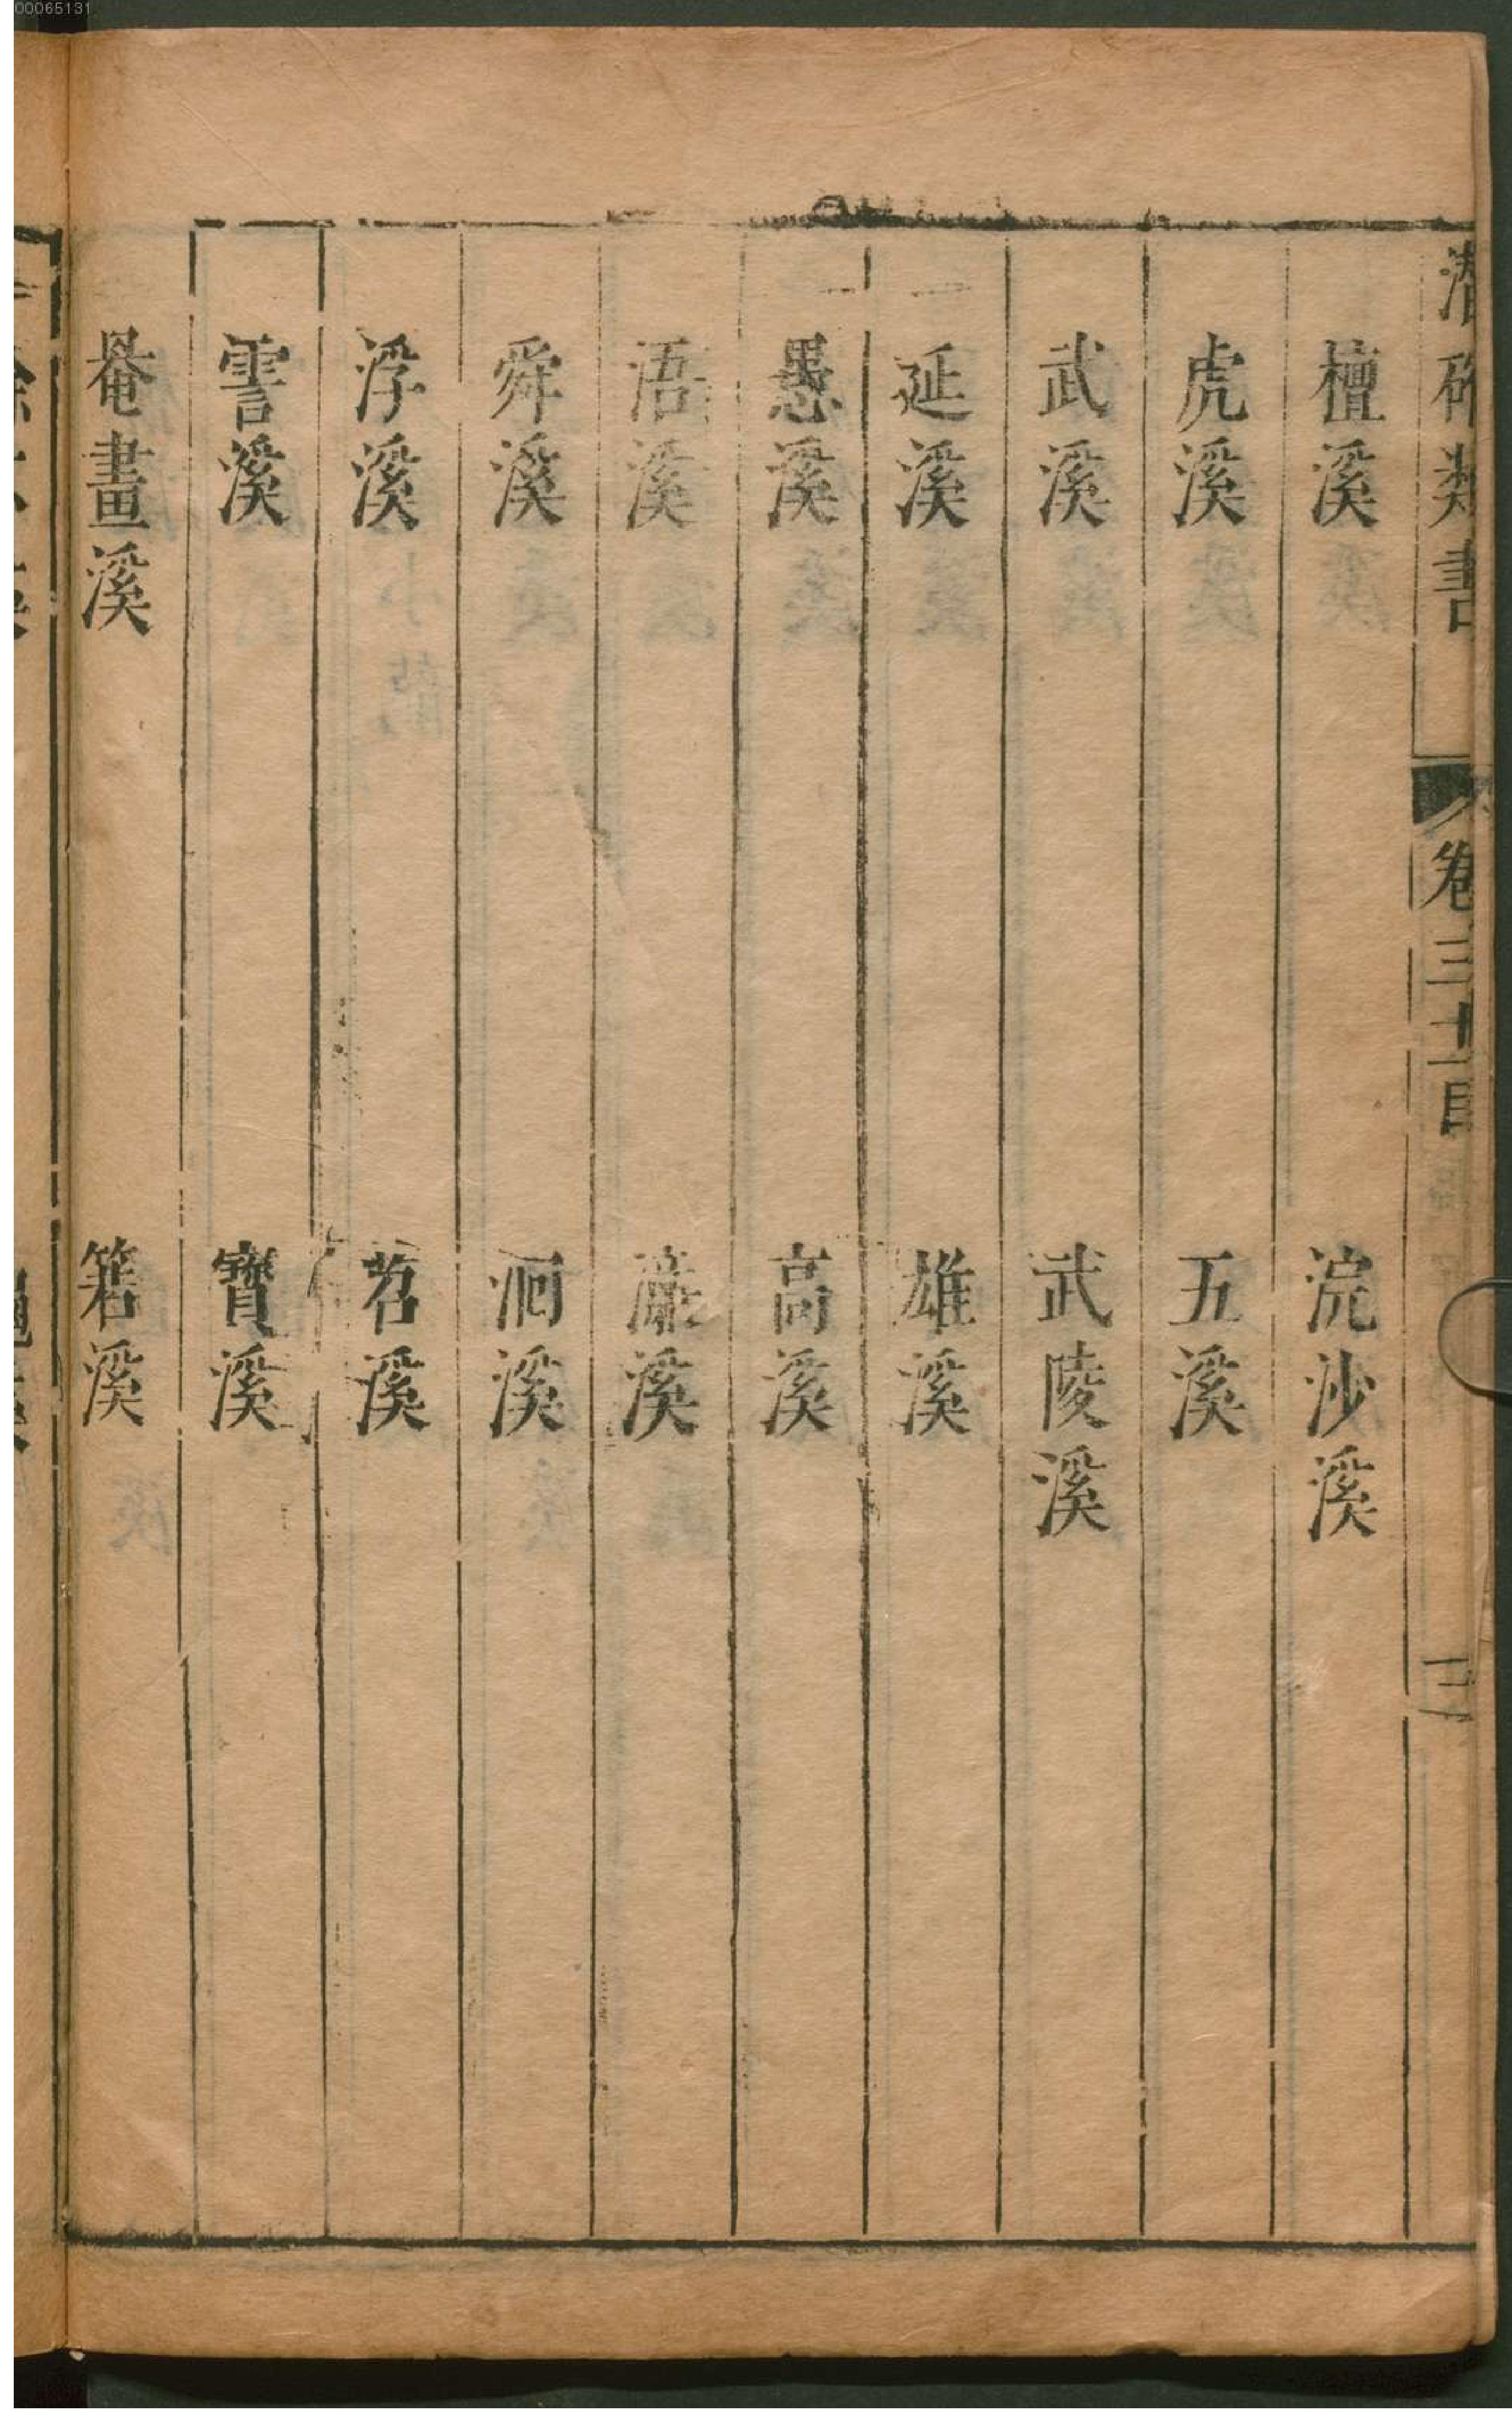 00065131
潛確類書 卷三十目 三
檀溪 浣沙溪
虎溪 五溪
武溪 武陵溪
延溪 雄溪
愚溪 高溪
浯溪 濂溪
舜溪 泂溪
浮溪 苕溪
霅溪 寶溪
罨畫溪 箬溪